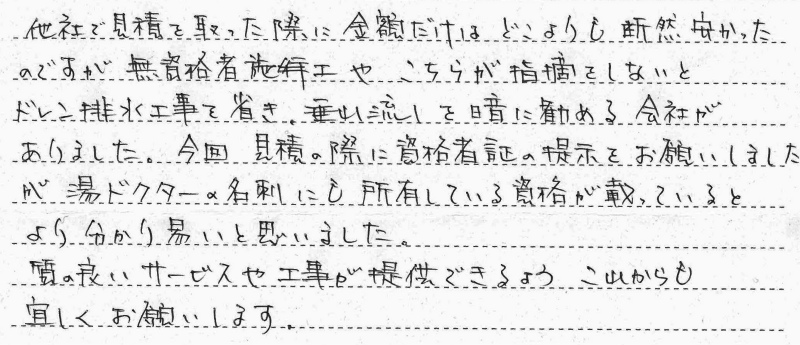 他社で見積を取った際に金額だけはどこよりも断然安かった
のですが無資格者施工や こちらが指摘をしないと
ドレン排水工事を省き、垂れ流しを暗に勧める会社が
ありました。今回 見積の際に資格者証の提示をお願いしました
が 湯ドクターの名刺にも所有している資格が載っていると
より分かり易いと思いました。
質の良いサービスや工事が提供できるよう これからも
宜しくお願いします。